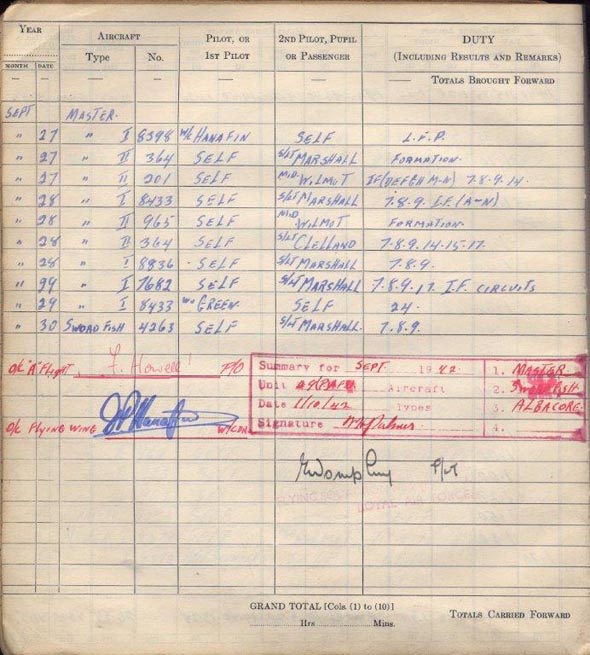 YEAR AIRCRAFT PILOT, OR 1ST PILOT 2ND PILOT, PUPIL OR PASSENGER DUTY (INCLUDING RESULTS AND REMARKS)
MONTH DATE Type No.
— — — — — — — TOTALS BROUGHT FORWARD
SEPT MASTER.
" 27 " I 8398 W/C HANAFIN SELF L.F.P.
" 27 " II 364 SELF S/LT MARSHALL FORMATION.
" 27 " II 201 SELF MID. WILMOT IF (DEFGH M-N) 7.8.9.14.
" 28 " I 8433 SELF S/LT MARSHALL 7.8.9. I.F. (A-N)
" 28 " II 965 SELF MID WILMOT FORMATION.
" 28 " II 364 SELF S/LT CLELLAND 7.8.9.14.15.17.
" 28 " I 8836 SELF S/LT MARSHALL 7.8.9.
" 29 " I 7682 SELF S/LT MARSHALL 7.8.9.17. I.F. CIRCUITS
" 29 " I 8433 GREEN. SELF 24.
" 30 SWORDFISH 4263 SELF S/LT MARSHALL. 7.8.9.
O/C "A" Flight F. Howell F/O
Summary for SEPT. 1942 1. MASTER
Unit Aircraft 2. Swordfish
Date 1/10/42 Types 3. ALBACORE
Signature 4.
O/C FLYING WING W/CDR
F/LT
ROYAL AIR FORCE
GRAND TOTAL [Cols. (1) to (10)]
Hrs Mins.
TOTALS CARRIED FORWARD